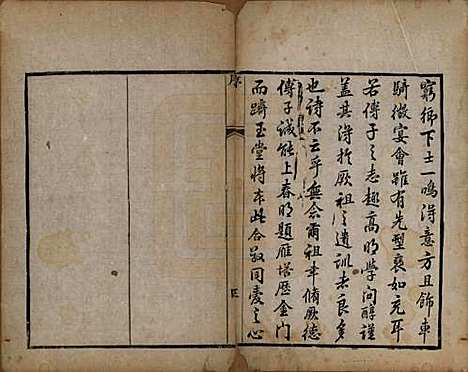 窮鄉下士一鳴得意方且飾車
騎徵宴會雖有先型褎如充耳
若傅子之志趣高明學問醇謹
蓋其得於厥祖之遺訓未良多
也詩不云乎無念爾祖聿脩厥德
傅子誠能上春明題雁塔歷金門
而躋玉堂將本此合敬同愛之心
序